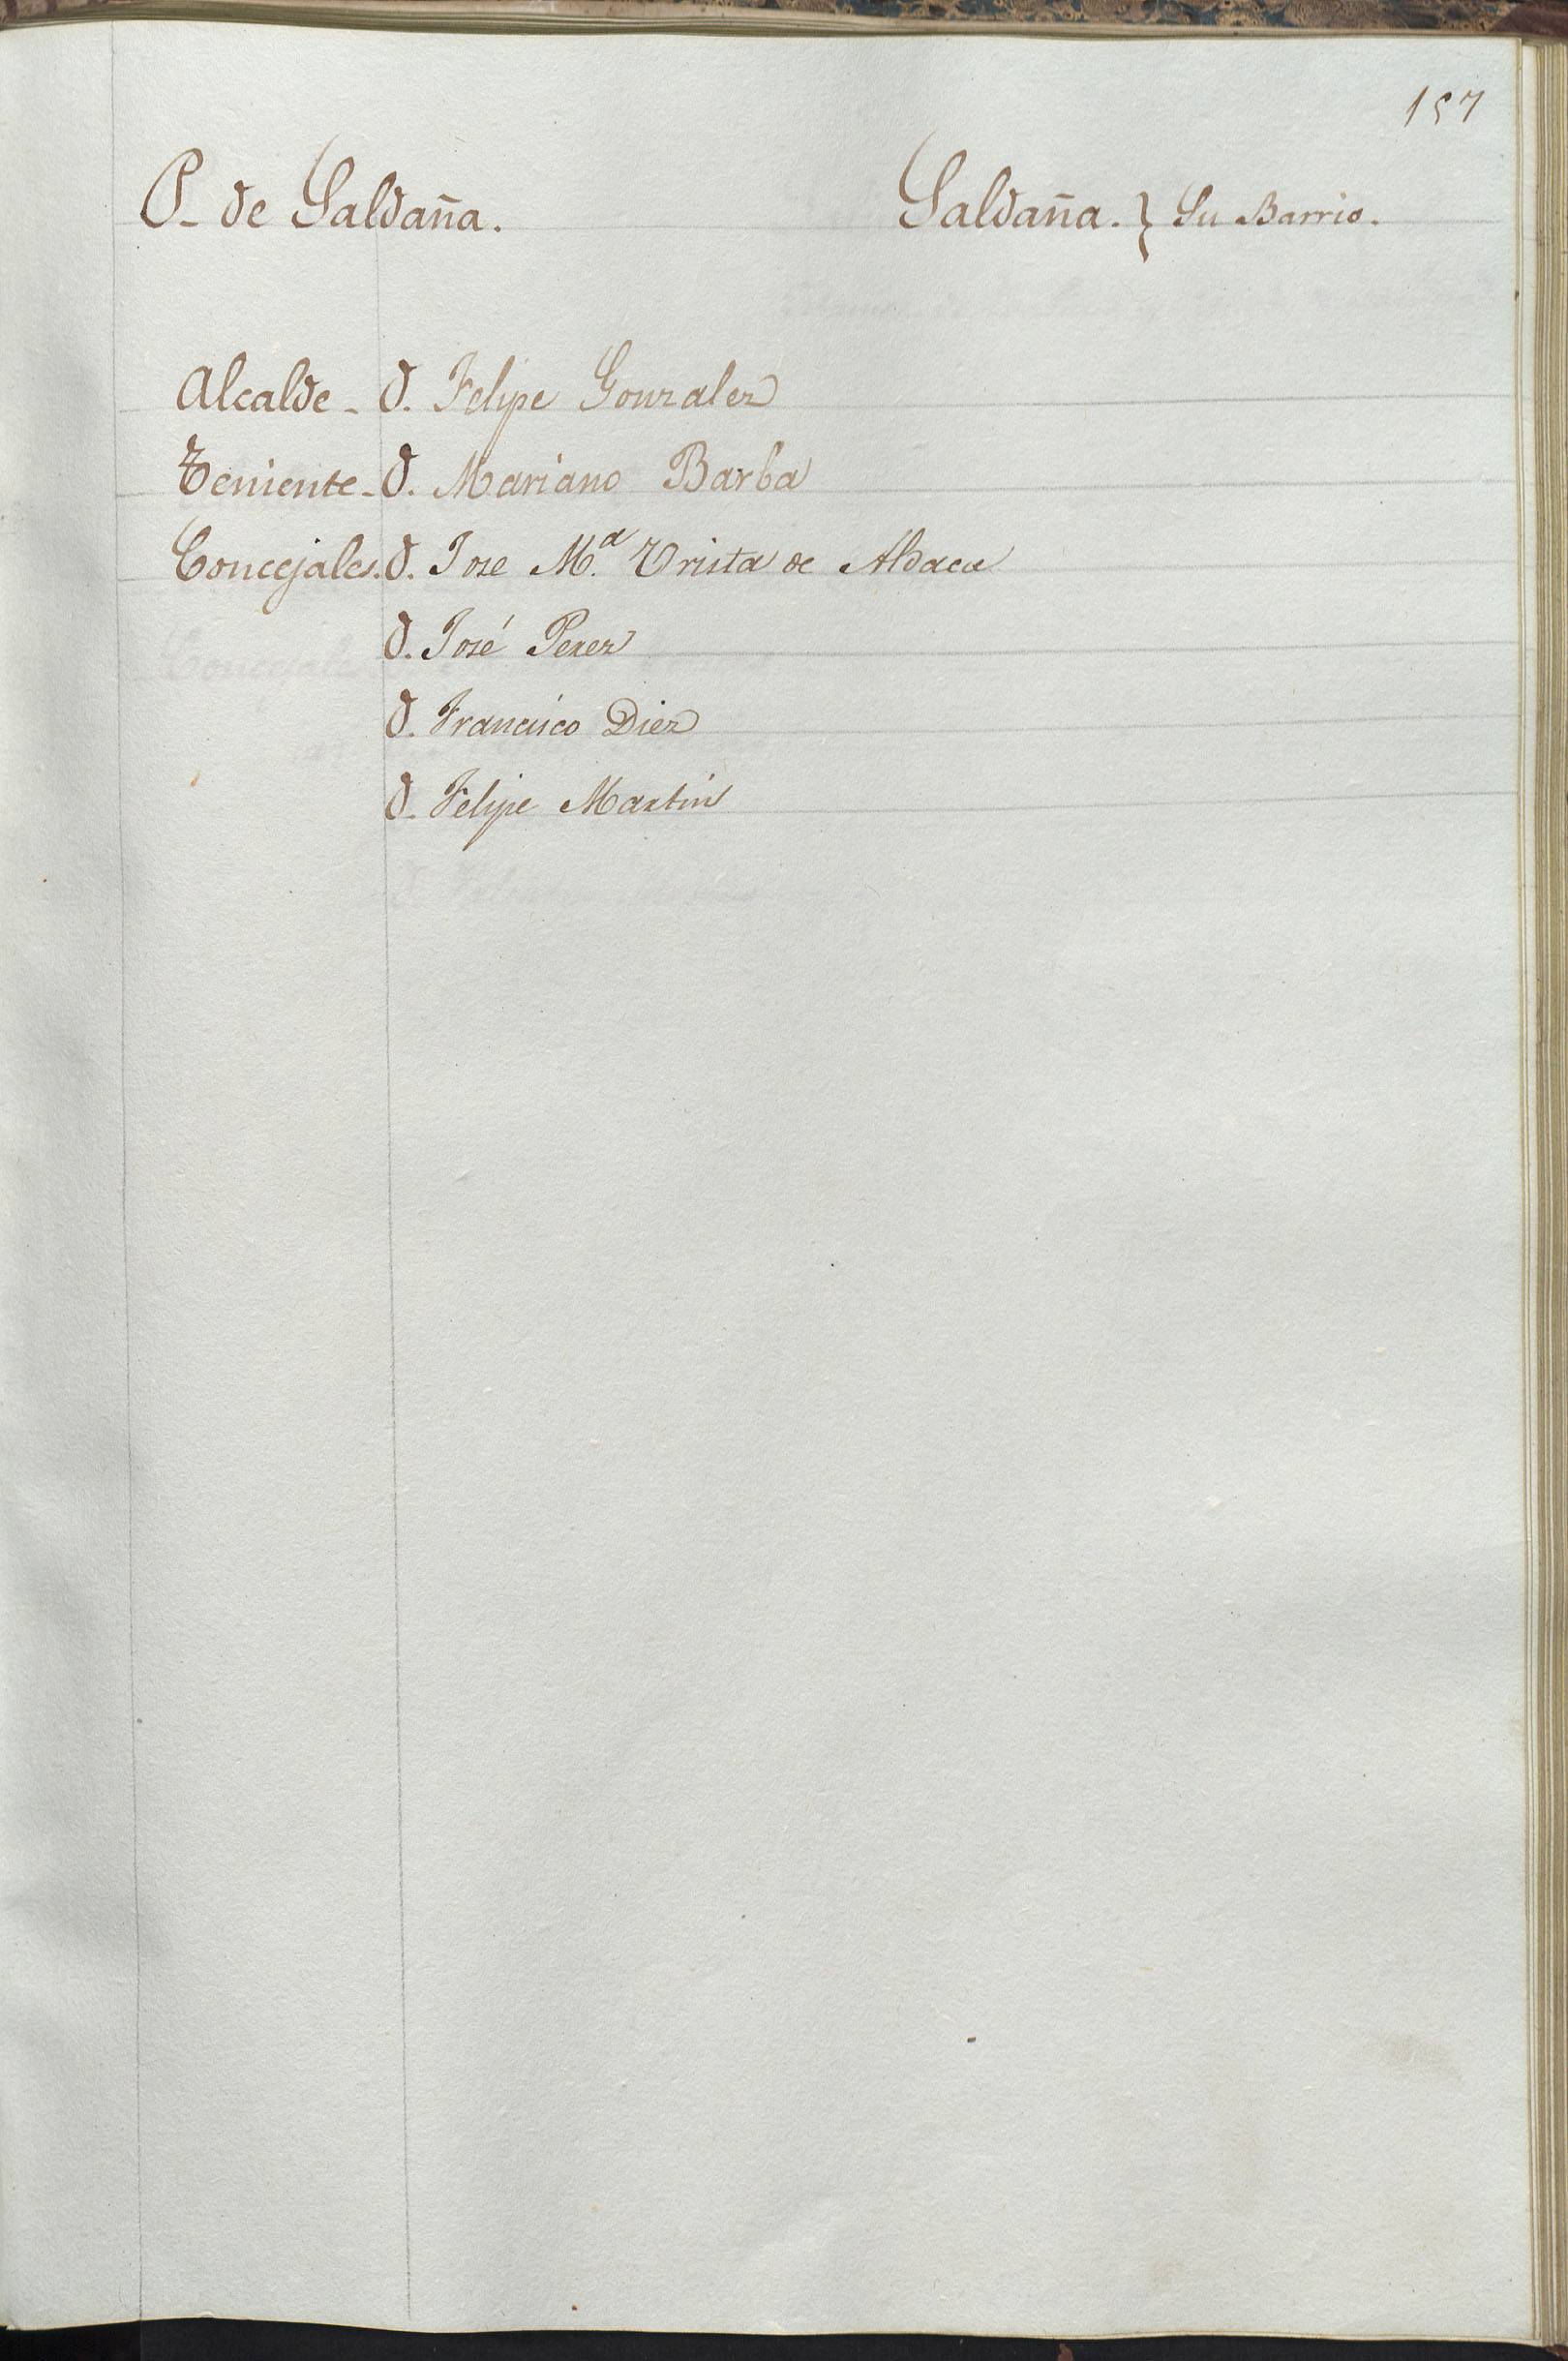 157
P. de Saldaña. Saldaña. } Su Barrio.
Alcalde - D. Felipe Gonzalez
Teniente - D. Mariano Barba
Concejales. D. Jose M.ª Trista de Aldaca
D. José Perez
D. Francisco Diez
D. Felipe Martin